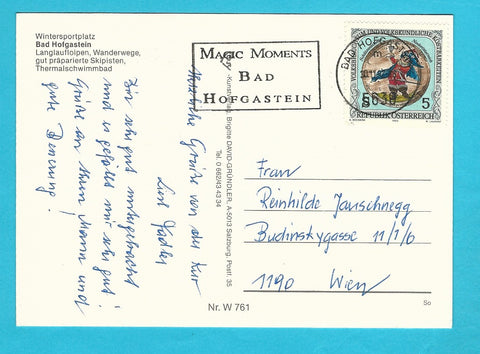 Wintersportplatz
Bad Hofgastein
Langlaufloipen, Wanderwege,
gut präparierte Skipisten,
Thermalschwimmbad
MAGIC MOMENTS
BAD
HOFGASTEIN
BAD HOFGASTEIN
5630
5
REPUBLIK ÖSTERREICH
Herzliche Grüße von der Kur
Bin sehr gut untergebracht
und es gefällt mir sehr gut!
Grüße an Ihren Mann und
gute Besserung!
Kunstverlag Brigitte DAVID-GRÜNDLER, A-5013 Salzburg, Postf. 35
Tel. 0 662/43 43 34
Frau
Reinhilde Janschnegg
Budinskygasse 11/1/6
1190 Wien
Nr. W 761
So